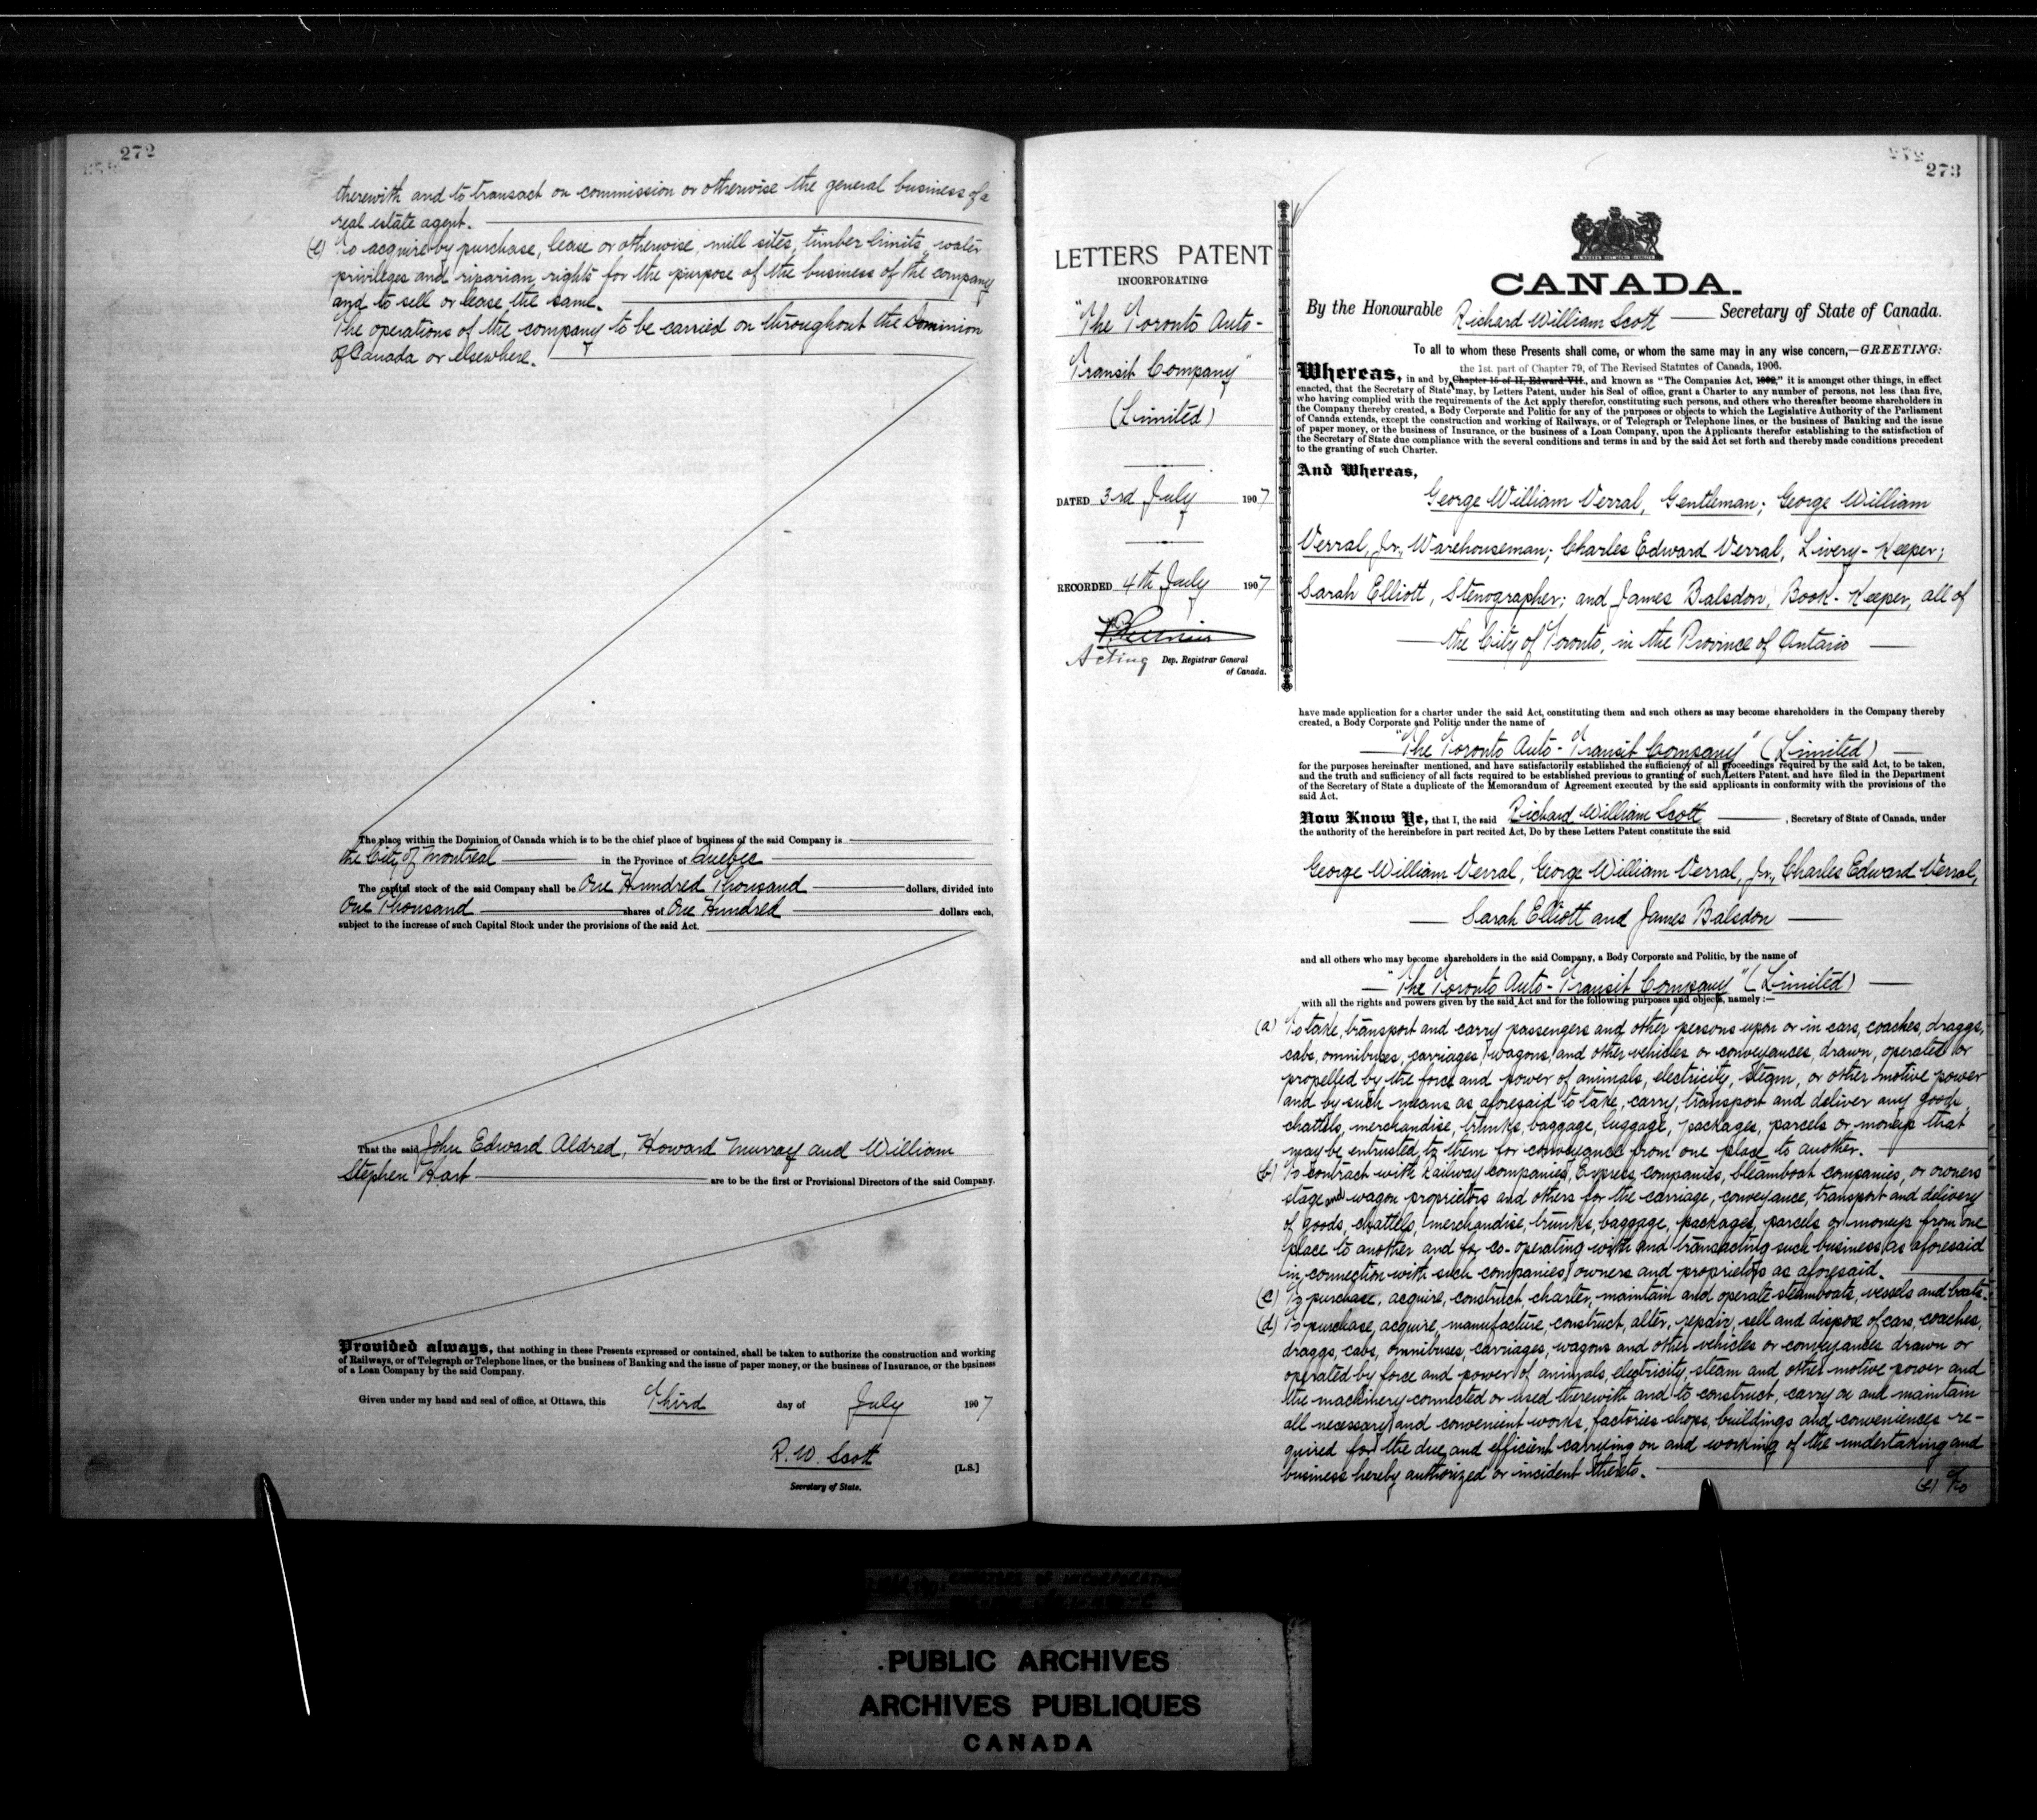 272
therewith and to transact on commission or otherwise the general business of a
real estate agent.
(e) To acquire by purchase, lease or otherwise, mill sites, timber limits, water
privileges and riparian rights for the purpose of the business of the company
and to sell or lease the same.
The operations of the company to be carried on throughout the Dominion
of Canada or elsewhere.
The place within the Dominion of Canada which is to be the chief place of business of the said Company is
the City of Montreal in the Province of Quebec
The capital stock of the said Company shall be One Hundred Thousand dollars, divided into
One Thousand shares of One Hundred dollars each,
subject to the increase of such Capital Stock under the provisions of the said Act.
That the said John Edward Aldred, Howard Murray and William
Stephen Hart are to be the first or Provisional Directors of the said Company.
Provided always, that nothing in these Presents expressed or contained, shall be taken to authorize the construction and working
of Railways, or of Telegraph or Telephone lines, or the business of Banking and the issue of paper money, or the business of Insurance, or the business
of a Loan Company by the said Company.
Given under my hand and seal of office, at Ottawa, this Third day of July 1907
R. W. Scott
[L.S.]
Secretary of State.
273
LETTERS PATENT
INCORPORATING
"The Toronto Auto-
Transit Company"
(Limited)
DATED 3rd July 1907
RECORDED 4th July 1907
Acting Dep. Registrar General
of Canada.
CANADA.
By the Honourable Richard William Scott Secretary of State of Canada.
To all to whom these Presents shall come, or whom the same may in any wise concern,—GREETING:
the 1st. part of Chapter 79, of The Revised Statutes of Canada, 1906.
Whereas, in and by Chapter 15 of II, Edward VII., and known as "The Companies Act, 1902," it is amongst other things, in effect
enacted, that the Secretary of State may, by Letters Patent, under his Seal of office, grant a Charter to any number of persons, not less than five,
who having complied with the requirements of the Act apply therefor, constituting such persons, and others who thereafter become shareholders in
the Company thereby created, a Body Corporate and Politic for any of the purposes or objects to which the Legislative Authority of the Parliament
of Canada extends, except the construction and working of Railways, or of Telegraph or Telephone lines, or the business of Banking and the issue
of paper money, or the business of Insurance, or the business of a Loan Company, upon the Applicants therefor establishing to the satisfaction of
the Secretary of State due compliance with the several conditions and terms in and by the said Act set forth and thereby made conditions precedent
to the granting of such Charter.
And Whereas,
George William Verral, Gentleman; George William
Verral, Jr., Warehouseman; Charles Edward Verral, Livery-Keeper;
Sarah Elliott, Stenographer; and James Balsdon, Book-Keeper, all of
the City of Toronto, in the Province of Ontario
have made application for a charter under the said Act, constituting them and such others as may become shareholders in the Company thereby
created, a Body Corporate and Politic under the name of
"The Toronto Auto-Transit Company" (Limited)
for the purposes hereinafter mentioned, and have satisfactorily established the sufficiency of all proceedings required by the said Act, to be taken,
and the truth and sufficiency of all facts required to be established previous to granting of such Letters Patent, and have filed in the Department
of the Secretary of State a duplicate of the Memorandum of Agreement executed by the said applicants in conformity with the provisions of the
said Act.
Now Know Ye, that I, the said Richard William Scott, Secretary of State of Canada, under
the authority of the hereinbefore in part recited Act, Do by these Letters Patent constitute the said
George William Verral, George William Verral, Jr., Charles Edward Verral,
Sarah Elliott and James Balsdon
and all others who may become shareholders in the said Company, a Body Corporate and Politic, by the name of
"The Toronto Auto-Transit Company" (Limited)
with all the rights and powers given by the said Act and for the following purposes and objects, namely:—
(a) To take, transport and carry passengers and other persons upon or in cars, coaches, draggs,
cabs, omnibuses, carriages, wagons, and other vehicles or conveyances, drawn, operated or
propelled by the force and power of animals, electricity, steam, or other motive power
and by such means as aforesaid to take, carry, transport and deliver any goods,
chattels, merchandise, trunks, baggage, luggage, packages, parcels or moneys that
may be entrusted to them for conveyance from one place to another.
(b) To contract with Railway companies, Express companies, steamboat companies, or owners
stage and wagon proprietors and others for the carriage, conveyance, transport and delivery
of goods, chattels, merchandise, trunks, baggage, packages, parcels or moneys from one
place to another and for co-operating with and transacting such business as aforesaid
in connection with such companies, owners and proprietors as aforesaid.
(c) To purchase, acquire, construct, charter, maintain and operate steamboats, vessels and boats.
(d) To purchase, acquire, manufacture, construct, alter, repair, sell and dispose of cars, coaches,
draggs, cabs, omnibuses, carriages, wagons and other vehicles or conveyances drawn or
operated by force and power of animals, electricity, steam and other motive power and
the machinery connected or used therewith and to construct, carry on and maintain
all necessary and convenient works, factories, shops, buildings and conveniences re-
quired for the due and efficient carrying on and working of the undertaking and
business hereby authorized or incident thereto.
(e) To
PUBLIC ARCHIVES
ARCHIVES PUBLIQUES
CANADA